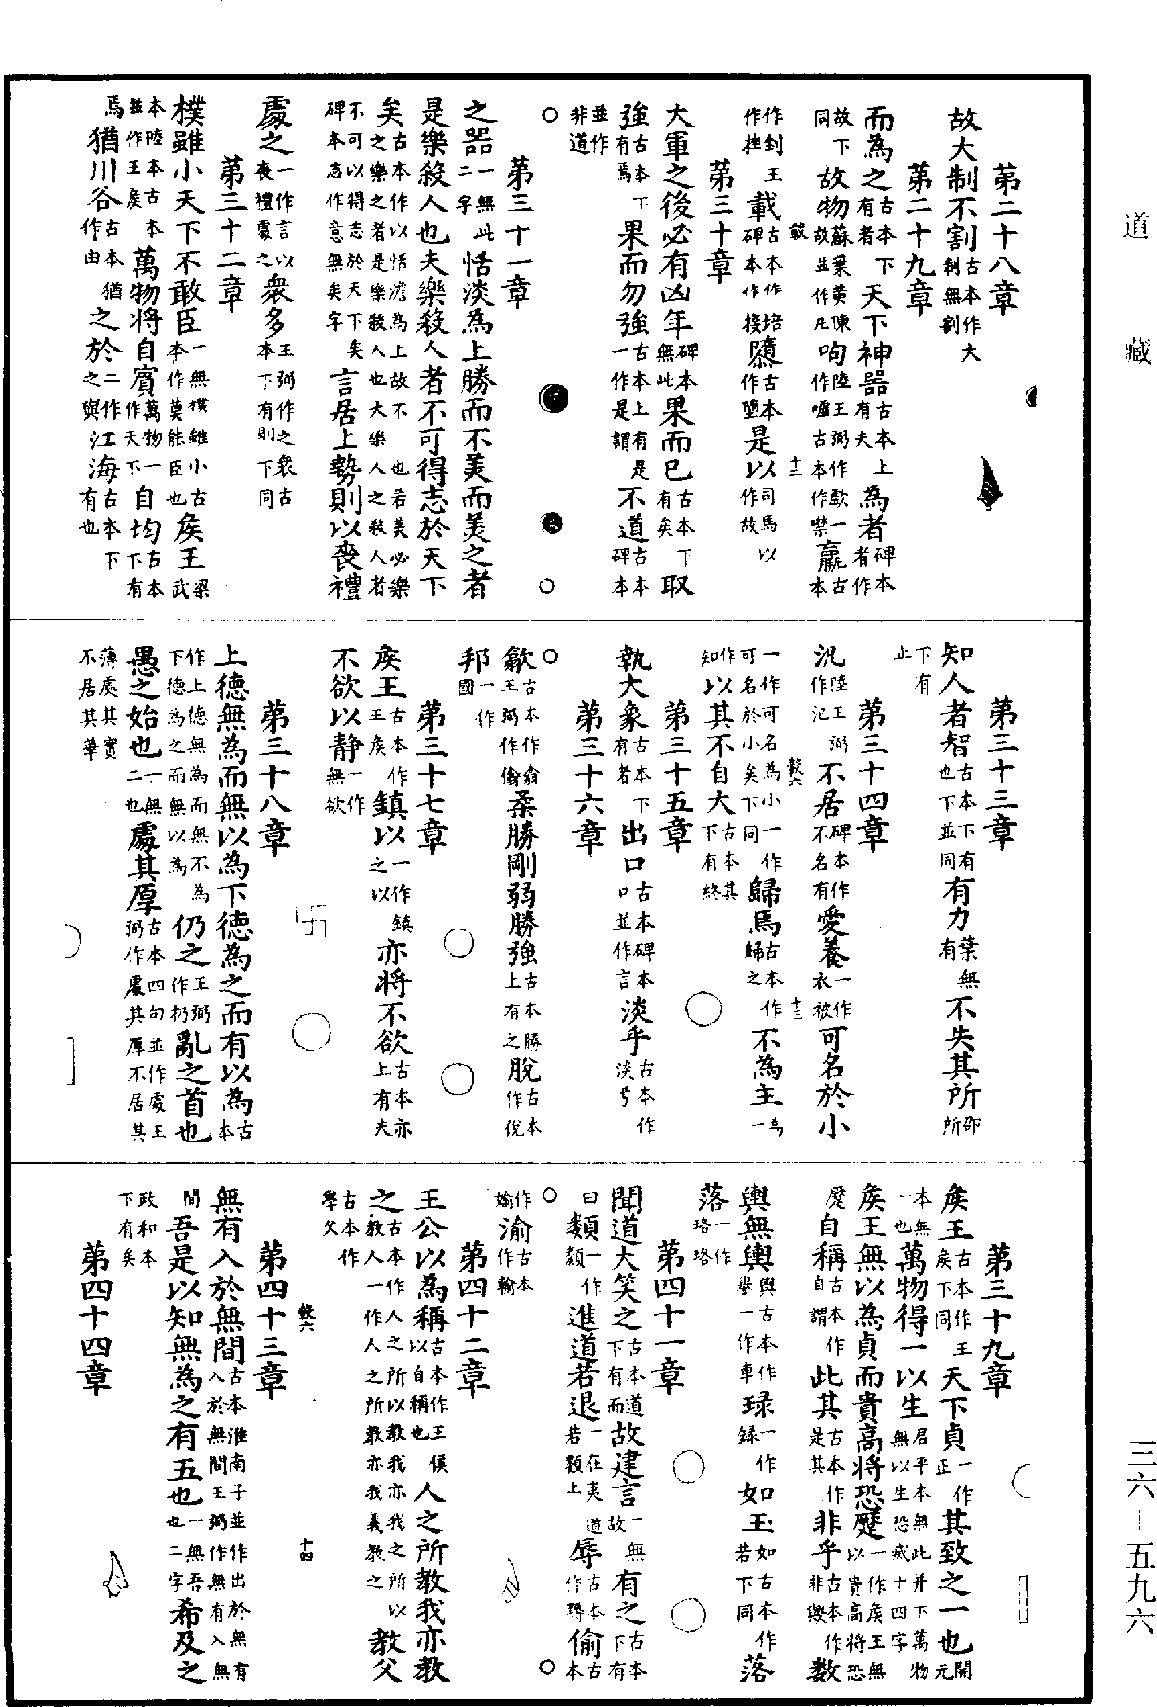 第二十八章
故大制不割古本作大制無割
第二十九章
而為之古本下有者天下神器古本上有夫為者碑本者作
故下同故物蘇葉黃陳故並作凡呴陸王弼作歔一作噓古本作噤羸古本
十二
作剉王作挫載古本作培碑本作接隳古本作墮是以司馬以作故
第三十章
大軍之後必有凶年碑本無此果而已古本下有矣取
強古本下有焉果而勿強古本上有是一作是謂不道古本碑本
並作非道
第三十一章
之器一無此二字恬淡為上勝而不美而美之者
是樂殺人也夫樂殺人者不可得志於天下
矣古本作以恬澹為上故不也若美必樂之樂之者是樂殺人也夫樂人之殺人者
不可以得志於天下矣碑本志作意無矣字言居上勢則以喪禮
處之一作言以喪禮處之衆多王弼作之衆古本下有則下同
第三十二章
樸雖小天下不敢臣一無樸雖小古本作莫能臣也矦王梁武
本陸本古本並作王矦萬物將自賓萬物一作天下自均古本下有
焉猶川谷古本猶作由之於二作之與江海古本下有也
第三十三章
知人者智古本下有也下並同有力葉無有不失其所邵所
下有止
第三十四章
汎陸王弼作氾不居碑本作不名有愛養一作衣被可名於小
十三
一作可名為小一作可名於小矣下同歸焉古本作歸之不為主一為
作知以其不自大古本其下有終
第三十五章
執大象古本下有者出口古本碑本口並作言淡乎古本作淡兮
第三十六章
歙古本作翕王弼作偷柔勝剛弱勝強古本勝上有之脫古本作侻
邦一作國
第三十七章
矦王古本作王矦鎮以一作鎮之以亦將不欲古本亦上有夫
不欲以静一作無欲
第三十八章
上德無為而無以為下德為之而有以為古本
作上德無為而無不為下德為之而無以為仍之王弼作扔亂之首也
愚之始也一無二也處其厚古本四句並作處王弼作處其厚不居其
薄處其實不居其華
第三十九章
矦王古本作王矦下同天下貞一作正其致之一也開元
本無一也萬物得一以生君平本無此并下萬物無以生恐滅十四字
矦王無以為貞而貴高將恐蹷一作矦王無以貴高將恐
蹷自稱古本作自謂此其古本作是其非乎古本作非歟數
輿無輿輿古本作譽一作車琭一作録如玉如古本作若下同落
落一作珞珞
第四十一章
聞道大笑之古本道下有而故建言一無故有之古本下有
曰纇一作類進道若退一在夷道若類上辱古本作䵵偷古本
作媮渝古本作輸
第四十二章
王公以為稱古本作王侯以自稱也人之所教我亦教
之古本作人之所以教我亦我之所以教人一作人之所教亦我義教之教父
古本作學父
十四
第四十三章
無有入於無間古本淮南子並作出於無有入於無間王弼作無有入無
間吾是以知無為之有五也一無吾也二字希及之
政和本下有矣
第四十四章
道藏
三六—五九六